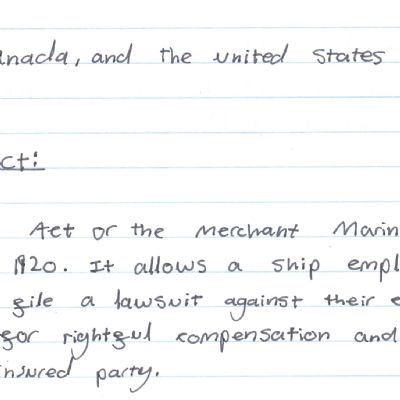 anada, and the united states
ct:
Act or the merchant Marin
1920. It allows a ship empl
file a lawsuit against their e
for rightful compensation and
insured party.